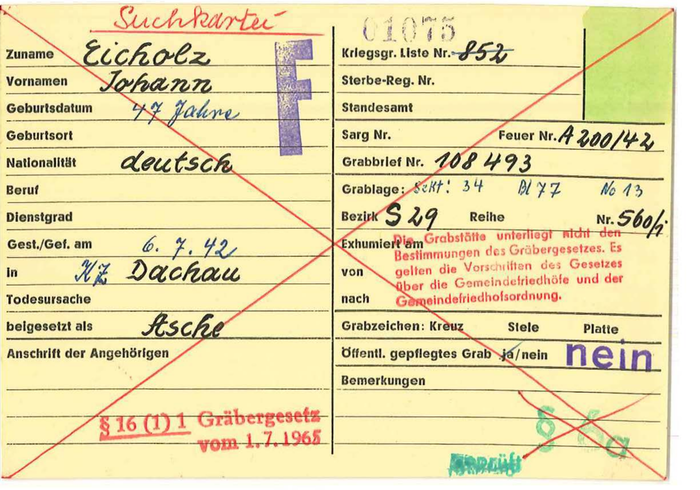 Suchkartei
Zuname Eicholz
Vornamen Johann
Geburtsdatum 47 Jahre
Geburtsort
Nationalität deutsch
Beruf
Dienstgrad
Gest./Gef. am 6.7.42
in KZ Dachau
Todesursache
beigesetzt als Asche
Anschrift der Angehörigen
§ 16 (1) 1 Gräbergesetz
vom 1.7.1965
F
01075
Kriegsgr. Liste Nr. 852
Sterbe-Reg. Nr.
Standesamt
Sarg Nr. Feuer Nr. A 200/42
Grabbrief Nr. 108 493
Grablage: Sekt: 34 Bl 77 No 13
Bezirk S 29 Reihe Nr. 560/i
Exhumiert am
von
nach
Die Grabstätte unterliegt nicht den
Bestimmungen des Gräbergesetzes. Es
gelten die Vorschriften des Gesetzes
über die Gemeindefriedhöfe und der
Gemeindefriedhofsordnung.
Grabzeichen: Kreuz Stele Platte
Öffentl. gepflegtes Grab ja/nein nein
Bemerkungen
§ 6a
Geprüft